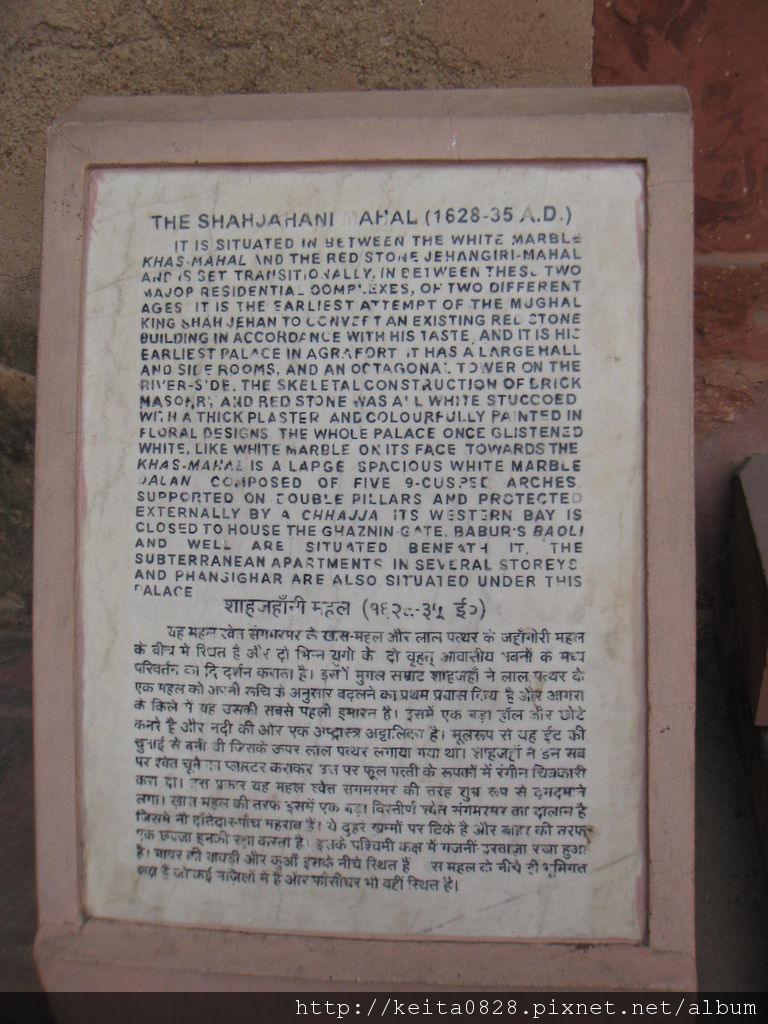 THE SHAHJAHANI MAHAL (1628-35 A.D.)
IT IS SITUATED IN BETWEEN THE WHITE MARBLE
KHAS-MAHAL AND THE RED STONE JEHANGIRI-MAHAL
AND IS SET TRANSITIONALLY, IN BETWEEN THESE TWO
MAJOR RESIDENTIAL COMPLEXES, OF TWO DIFFERENT
AGES. IT IS THE EARLIEST ATTEMPT OF THE MUGHAL
KING SHAH JEHAN TO CONVERT AN EXISTING RED STONE
BUILDING IN ACCORDANCE WITH HIS TASTE, AND IT IS HIS
EARLIEST PALACE IN AGRAFORT. IT HAS A LARGE HALL
AND SIDE ROOMS, AND AN OCTAGONAL TOWER ON THE
RIVER-SIDE. THE SKELETAL CONSTRUCTION OF BRICK
MASONRY AND RED STONE WAS ALL WHITE STUCCOED
WITH A THICK PLASTER AND COLOURFULLY PAINTED IN
FLORAL DESIGNS. THE WHOLE PALACE ONCE GLISTENED
WHITE, LIKE WHITE MARBLE ON ITS FACE TOWARDS THE
KHAS-MAHAL IS A LARGE SPACIOUS WHITE MARBLE
DALAN COMPOSED OF FIVE 9-CUSPED ARCHES
SUPPORTED ON DOUBLE PILLARS AND PROTECTED
EXTERNALLY BY A CHHAJJA. ITS WESTERN BAY IS
CLOSED TO HOUSE THE GHAZNIN-GATE. BABUR'S BAOLI
AND WELL ARE SITUATED BENEATH IT. THE
SUBTERRANEAN APARTMENTS IN SEVERAL STOREYS
AND PHANSIGHAR ARE ALSO SITUATED UNDER THIS
PALACE
शाहजहाँनी महल (१६२८-३५ ई०)
यह महल श्वेत संगमरमर के खास-महल और लाल पत्थर के जहाँगीरी महल
के बीच में स्थित है और दो भिन्न युगों के दो वृहत् आवासीय भवनों के मध्य
परिवर्तन का दिग्दर्शन कराता है। इसमें मुगल सम्राट शाहजहाँ ने लाल पत्थर के
एक महल को अपनी रूचि के अनुसार बदलने का प्रथम प्रयास किया है और आगरा
के किले में यह उसकी सबसे पहली इमारत है। इसमें एक बड़ा हॉल और छोटे
कमरे है और नदी की ओर एक अष्टास्त्र अट्टालिका है। मूलरूप से यह ईंट की
चुनाई से बनी थी जिसके ऊपर लाल पत्थर लगाया गया था। शाहजहाँ ने इन सब
पर श्वेत चूने का प्लास्टर कराकर उस पर फूल पत्ती के रूपकों में रंगीन चित्रकारी
करा दी। इस प्रकार यह महल श्वेत संगमरमर की तरह शुभ्र रूप से दमदमाने
लगा। खास महल की तरफ इसमें एक बड़ा विस्तीर्ण श्वेत संगमरमर का दालान है
जिसमें नौ दाँतेदार-पाँच महराब हैं। ये दुहरे खम्भों पर टिके है और बाहर की तरफ
एक छज्जा इनकी रक्षा करता है। इसके पश्चिमी कक्ष में गजनी-दरवाजा रखा हुआ
है। बाबर की बावड़ी और कुआँ इसके नीचे स्थित है महल के नीचे ही भूमिगत
कक्ष हैं जो कई मंजिलों में हैं और फाँसीघर भी वहीं स्थित है।
http://keita0828.pixnet.net/album